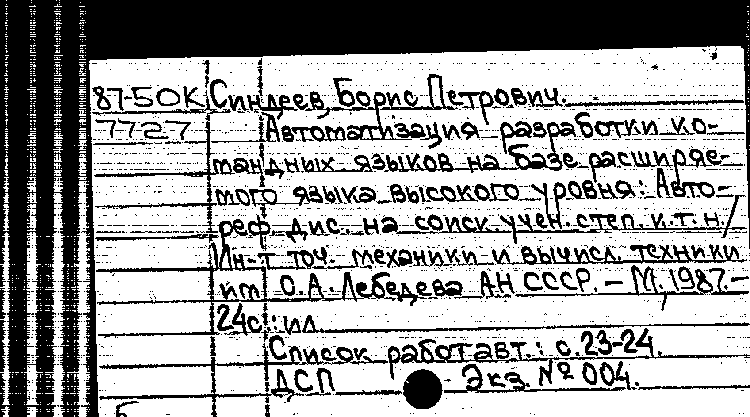 87-50К Синдеев, Борис Петрович.
7727 Автоматизация разработки ко-
мандных языков на базе расширяе-
мого языка высокого уровня: Авто-
реф. дис. на соиск. учен. степ. к.т.н/
Ин-т точ. механики и вычисл. техники
им О.А. Лебедева АН СССР. – М, 1987. –
24с.: ил
Список работ авт.: с. 23-24.
ДСП Экз. № 004.